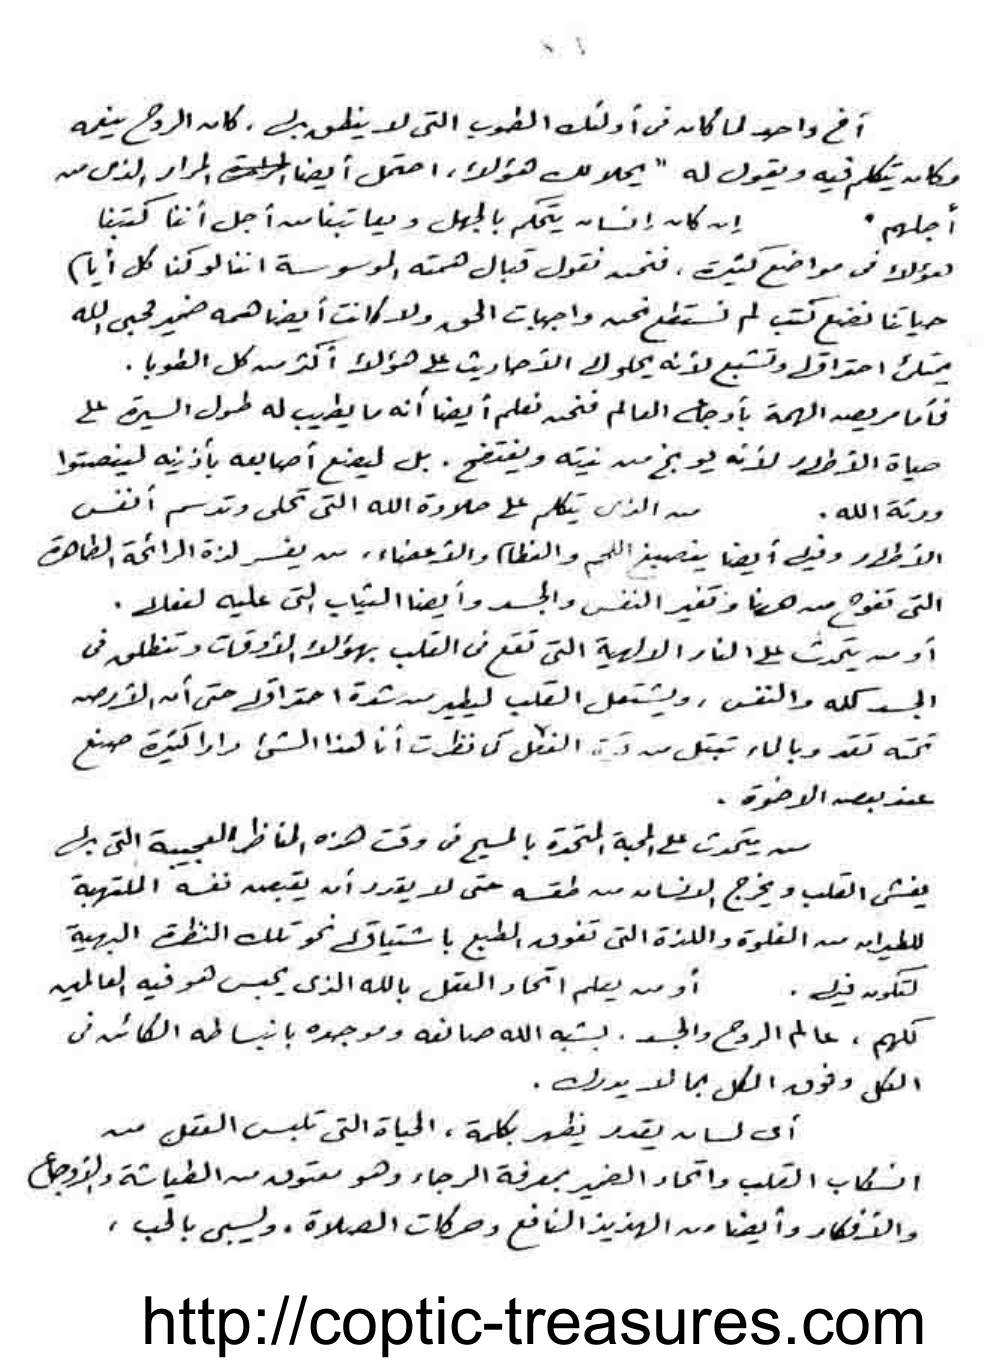 أخ واحد لما كان فى أولئك الطوب التى لا ينطق بها . كان الروح ينعمه
وكان يتكلم فيه ويقول له " يحلو لك هؤلاء ، احتمل أيضا المرار الذى من
أجلهم " إن كان إنسان يتحكم بالجهل ويعاتبنا من أجل أننا كتبنا
هؤلاء فى مواضع كثيرة ، فنحن نقول قبال همته الموسوسة اننا لو كنا كل أيام
حياتنا نضع كتب لم نستطع نحن واجبات الحق ولا كانت أيضا همه ضمير محبى الله
يمتلئ احتراقا وتشبع لأنه يحلو الأحاديث على هؤلاء أكثر من كل الطوبا .
فأما مريض الهمة بأوجاع العالم فنحن نعلم أيضا أنه ما يطيب له طول السيرة على
حياة الأطهار لأنه يوبخ من نيته ويفتضح . بل ليضع أصابعه بأذنيه لينصتوا
ورثة الله . من الذى يتكلم على حلاوة الله التى تحلى وتدسم أنفس
الأطهار وفيها أيضا ينصبغ اللحم والعظام والأعضاء ، من يفسر لذة الرائحة الطاهرة
التى تفوح من هنا وتغير النفس والجسد وأيضا الثياب التى عليه لفعلها .
أو من يتحدث على النار الالهية التى تقع فى القلب بهؤلاء الأوقات وتنطلق فى
الجسد كله والنفس ، ويشتعل القلب ليطير من شدة احتراقه حتى أن الأرض
تحته تقد وبالماء تبتل من الفعل كما نظرت أنا لهذا الشئ مرارا كثيرة صنع
عند بعض الاخوة .
من يتحدث على المحبة المتحدة بالمسيح فى وقت هذه المناظر العجيبة التى بها
يغشى القلب ويخرج الإنسان من طقسه حتى لا يقدر أن يقبض نفسه الملتهبة
للطيران من الغلوة واللذة التى تفوق الطبع باشتياقها نحو تلك النظرة البهية
لتكون فيها . أو من يعلم اتحاد العقل بالله الذى يحبس هو فيه العالمين
كلهم ، عالم الروح والجسد . بشبه الله صانعه وموجده بانبساطه الكائن فى
الكل وفوق الكل بما لا يدرك .
أى لسان يقدر يظهر بكلمة ، الحياة التى تلبس العقل من
انسكاب القلب واتحاد الضمير بمعرفة الرجاء وهو معتوق من الطياشة والأوجاع
والأفكار وأيضا من الهذيذ النافع وحركات الصلاة ، ويسبى بالحب ،
http://coptic-treasures.com